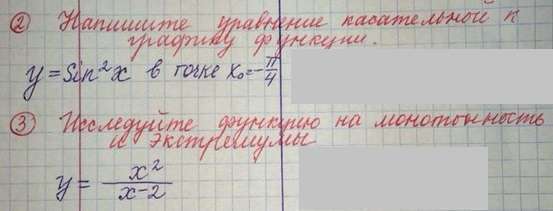 ② Напишите уравнение касательной к
графику функции.
y = sin²x в точке x₀ = -π/4
③ Исследуйте функцию на монотонность
и экстремумы
y = x²/(x-2)